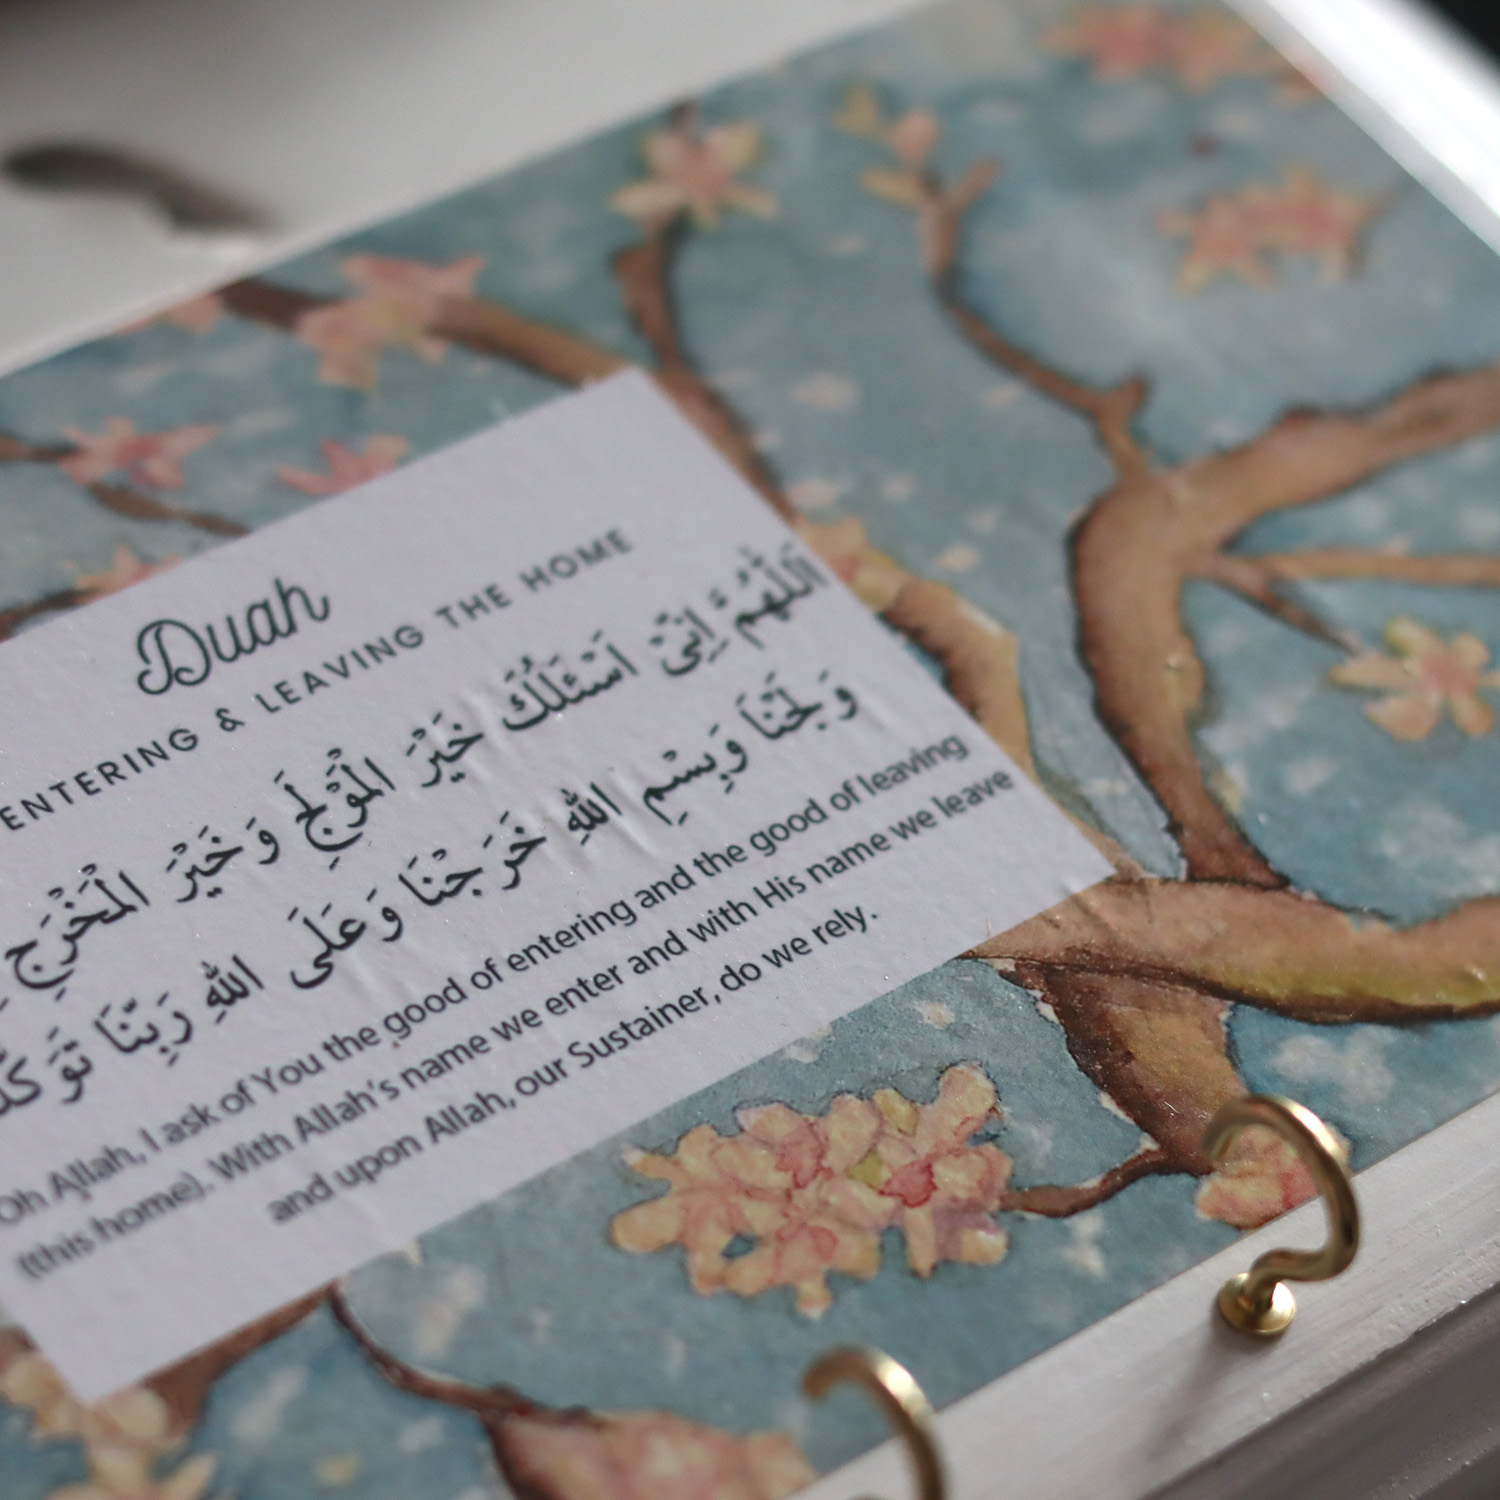 Duah
ENTERING & LEAVING THE HOME
اَللّٰهُمَّ اِنِّىْ اَسْئَلُكَ خَيْرَ الْمَوْلَجِ وَخَيْرَ الْمَخْرَجِ
وَلَجْنَا وَبِسْمِ اللهِ خَرَجْنَا وَعَلَى اللهِ رَبِّنَا
Oh Allah, I ask of You the good of entering and the good of leaving
(this home). With Allah's name we enter and with His name we leave
and upon Allah, our Sustainer, do we rely.